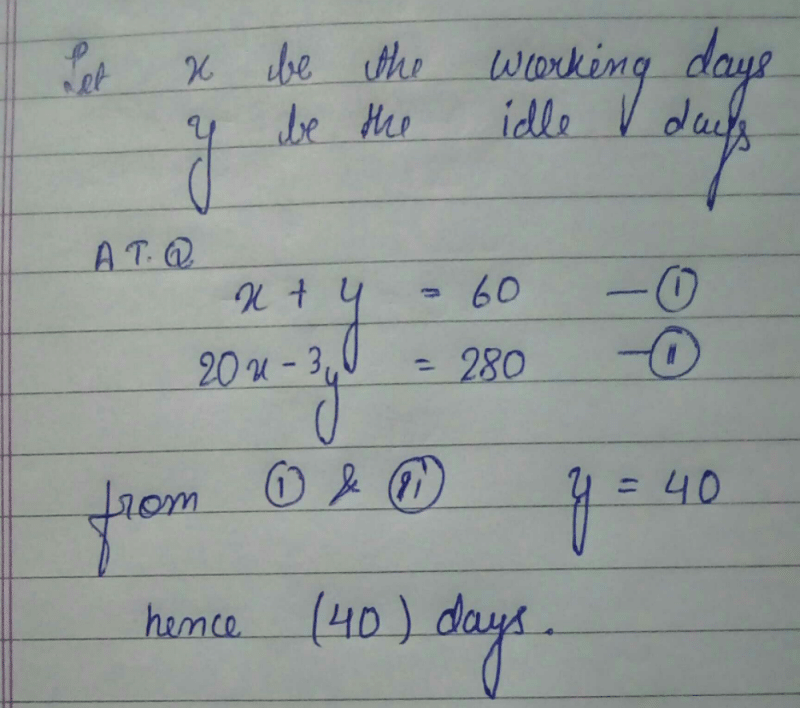 Let x be the working days
y be the idle days
A T. Q
x + y = 60 — (i)
20x - 3y = 280 — (ii)
from (i) & (ii) y = 40
hence (40) days.